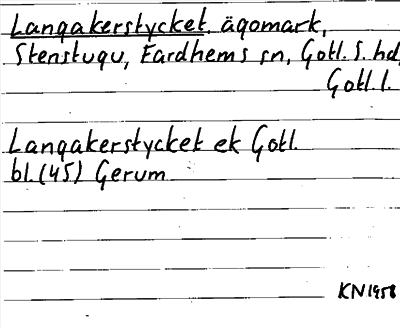 Langakerstycket, ägomark,
Stenstugu, Fardhems sn, Gotl. S. hd,
Gotl. l.
Langakerstycket ek Gotl.
bl. (45) Gerum
KN 1958